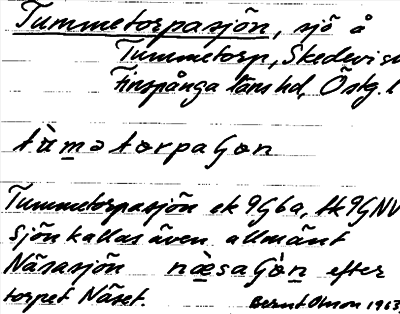 Tummetorpasjön, sjö å
Tummetorp, Skedevi s
Finspånga läns hd, Östg. l
tùmətorpaɧøn
Tummetorpasjön ek 9G6a, tk 9GNV
Sjön kallas även allmänt
Näsasjön næ̀saɧø̀n efter
torpet Näset. Bernt Olsson 1963